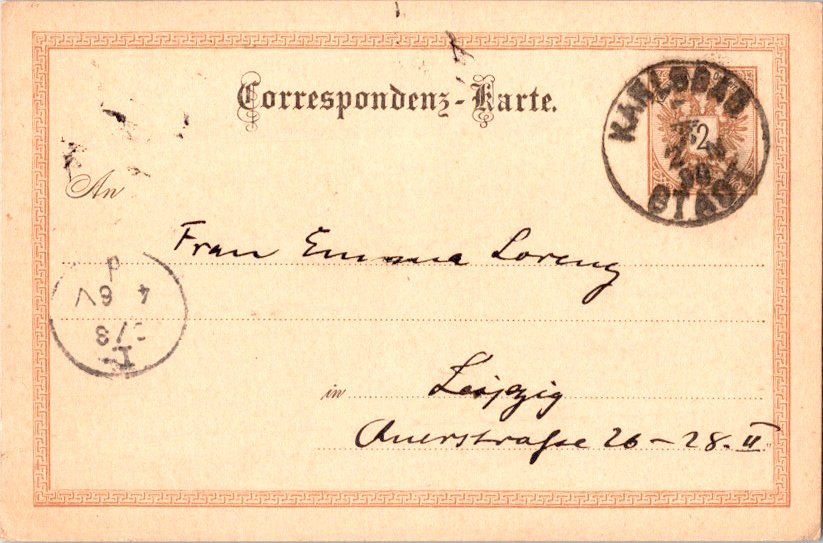 Correspondenz-Karte.
KARLSBAD
2
STADT
An
Frau Emma Lorenz
in Leipzig
Auerstraße 26-28. II